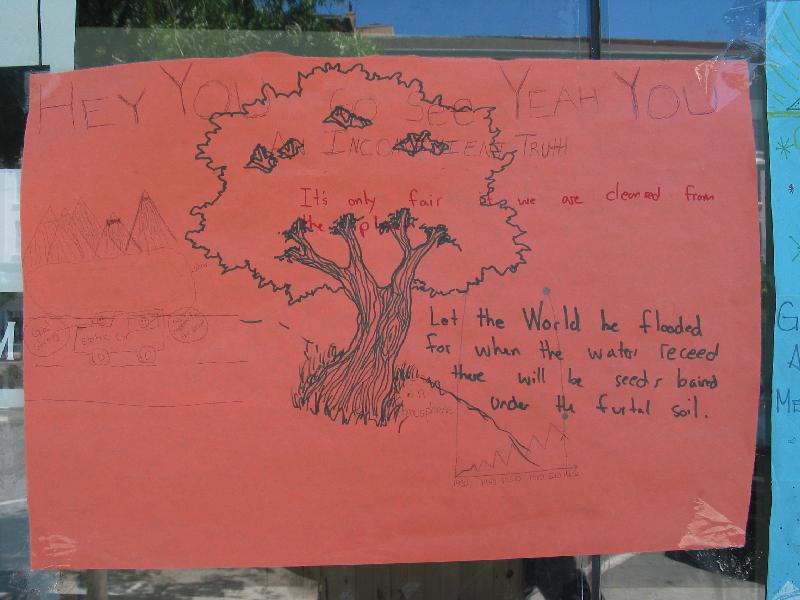 HEY YOU GO SEE YEAH YOU
AN INCONVENIENT TRUTH
It's only fair we are cleansed from
the
Let the World be flooded
for when the water receed
there will be seeds buired
under the furtal soil.
Electric Car
in
atmosphere
M
G
A
ME